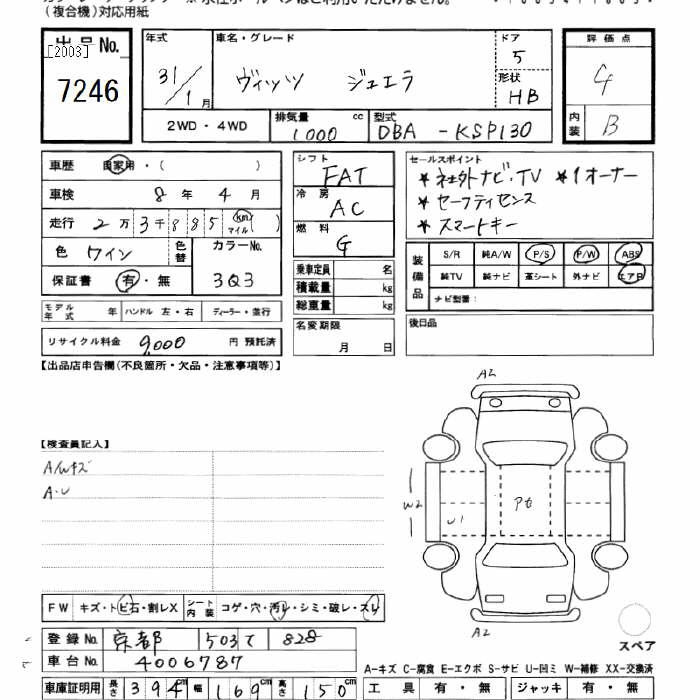 (複合機)対応用紙
出品No. 年式 車名・グレード ドア 評価点
[2003] 7246 31/1月 ヴィッツ ジュエラ 5 4
形状 HB
2WD・4WD 排気量 cc 1000 型式 DBA-KSP130 内装 B
車歴 自家用・( ) シフト FAT セールスポイント
車検 8年 4月 冷房 AC ★社外ナビ・TV ★1オーナー
走行 2万3千885 km マイル ( ) 燃料 G ★セーフティセンス
★スマートキー
色 ワイン 色替 カラーNo. 3Q3
保証書 有・無
乗車定員 名
積載量 kg
総重量 kg
装備品 S/R 純A/W P/S P/W ABS
純TV 純ナビ 革シート 外ナビ エアB
ナビ型番:
モデル年式 年 ハンドル 左・右 ディーラー・並行
名変期限 月 日
後日品
リサイクル料金 9,000 円 預託済
【出品店申告欄(不良箇所・欠品・注意事項等)】
A2
【検査員記入】
A/Wキズ
A・U
W2 U1
A2
FW キズ・トビ石・割レX シート内装 コゲ・穴・汚レ・シミ・破レ・スレ
登録No. 京都 503 て 828
車台No. 4006787
スペア
A-キズ C-腐食 E-エクボ S-サビ U-凹ミ W-補修 XX-交換済
車庫証明用 長さ 394cm 幅 169cm 高さ 150cm 工具 有・無 ジャッキ 有・無